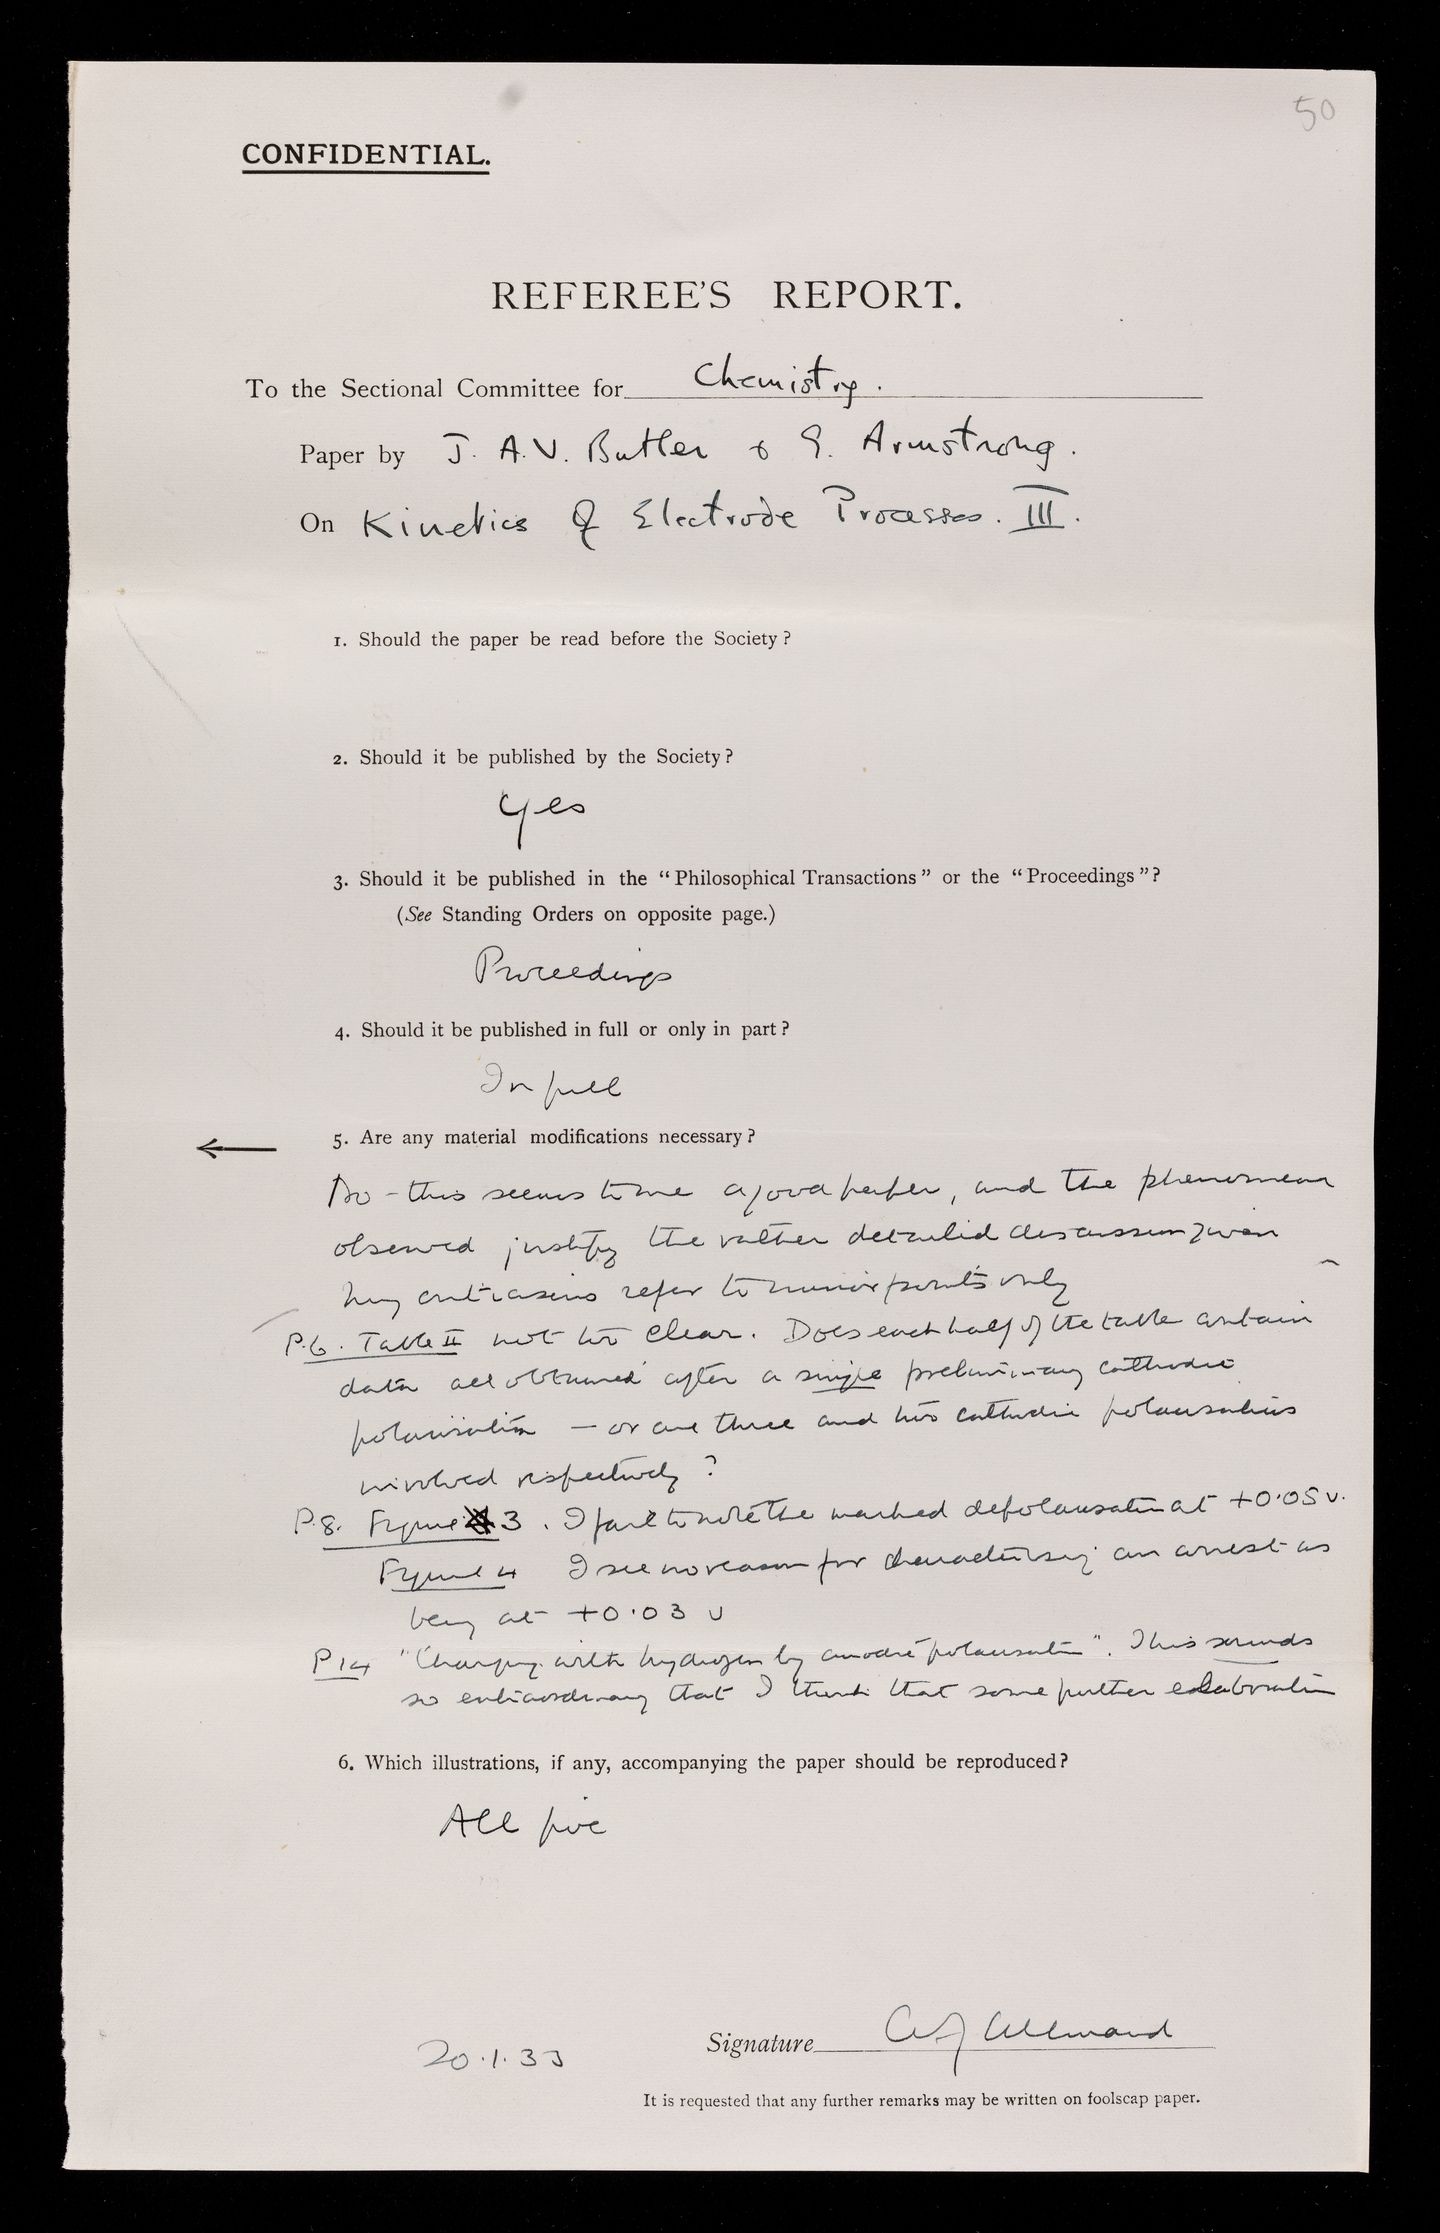 50
CONFIDENTIAL.
REFEREE'S REPORT.
To the Sectional Committee for Chemistry.
Paper by J. A. V. Butler & G. Armstrong.
On Kinetics of Electrode Processes. III.
1. Should the paper be read before the Society?
2. Should it be published by the Society?
Yes
3. Should it be published in the "Philosophical Transactions" or the "Proceedings"?
(See Standing Orders on opposite page.)
Proceedings
4. Should it be published in full or only in part?
In full
5. Are any material modifications necessary?
No - this seems to me a good paper, and the phenomena
observed justify the rather detailed discussion given
My criticisms refer to minor points only
P.6. Table II not too clear. Does each half of the table contain
data all obtained after a single preliminary cathodic
polarisation - or are three and two cathodic polarisations
involved respectively?
P.8. Figure 3. I fail to note the marked depolarisation at +0.05 v.
Figure 4 I see no reason for characterising an arrest as
being at +0.03 v
P14 "Charging with hydrogen by anodic polarisation". This sounds
so extraordinary that I think that some further elaboration
6. Which illustrations, if any, accompanying the paper should be reproduced?
All five
20.1.33
Signature A J Allmand
It is requested that any further remarks may be written on foolscap paper.